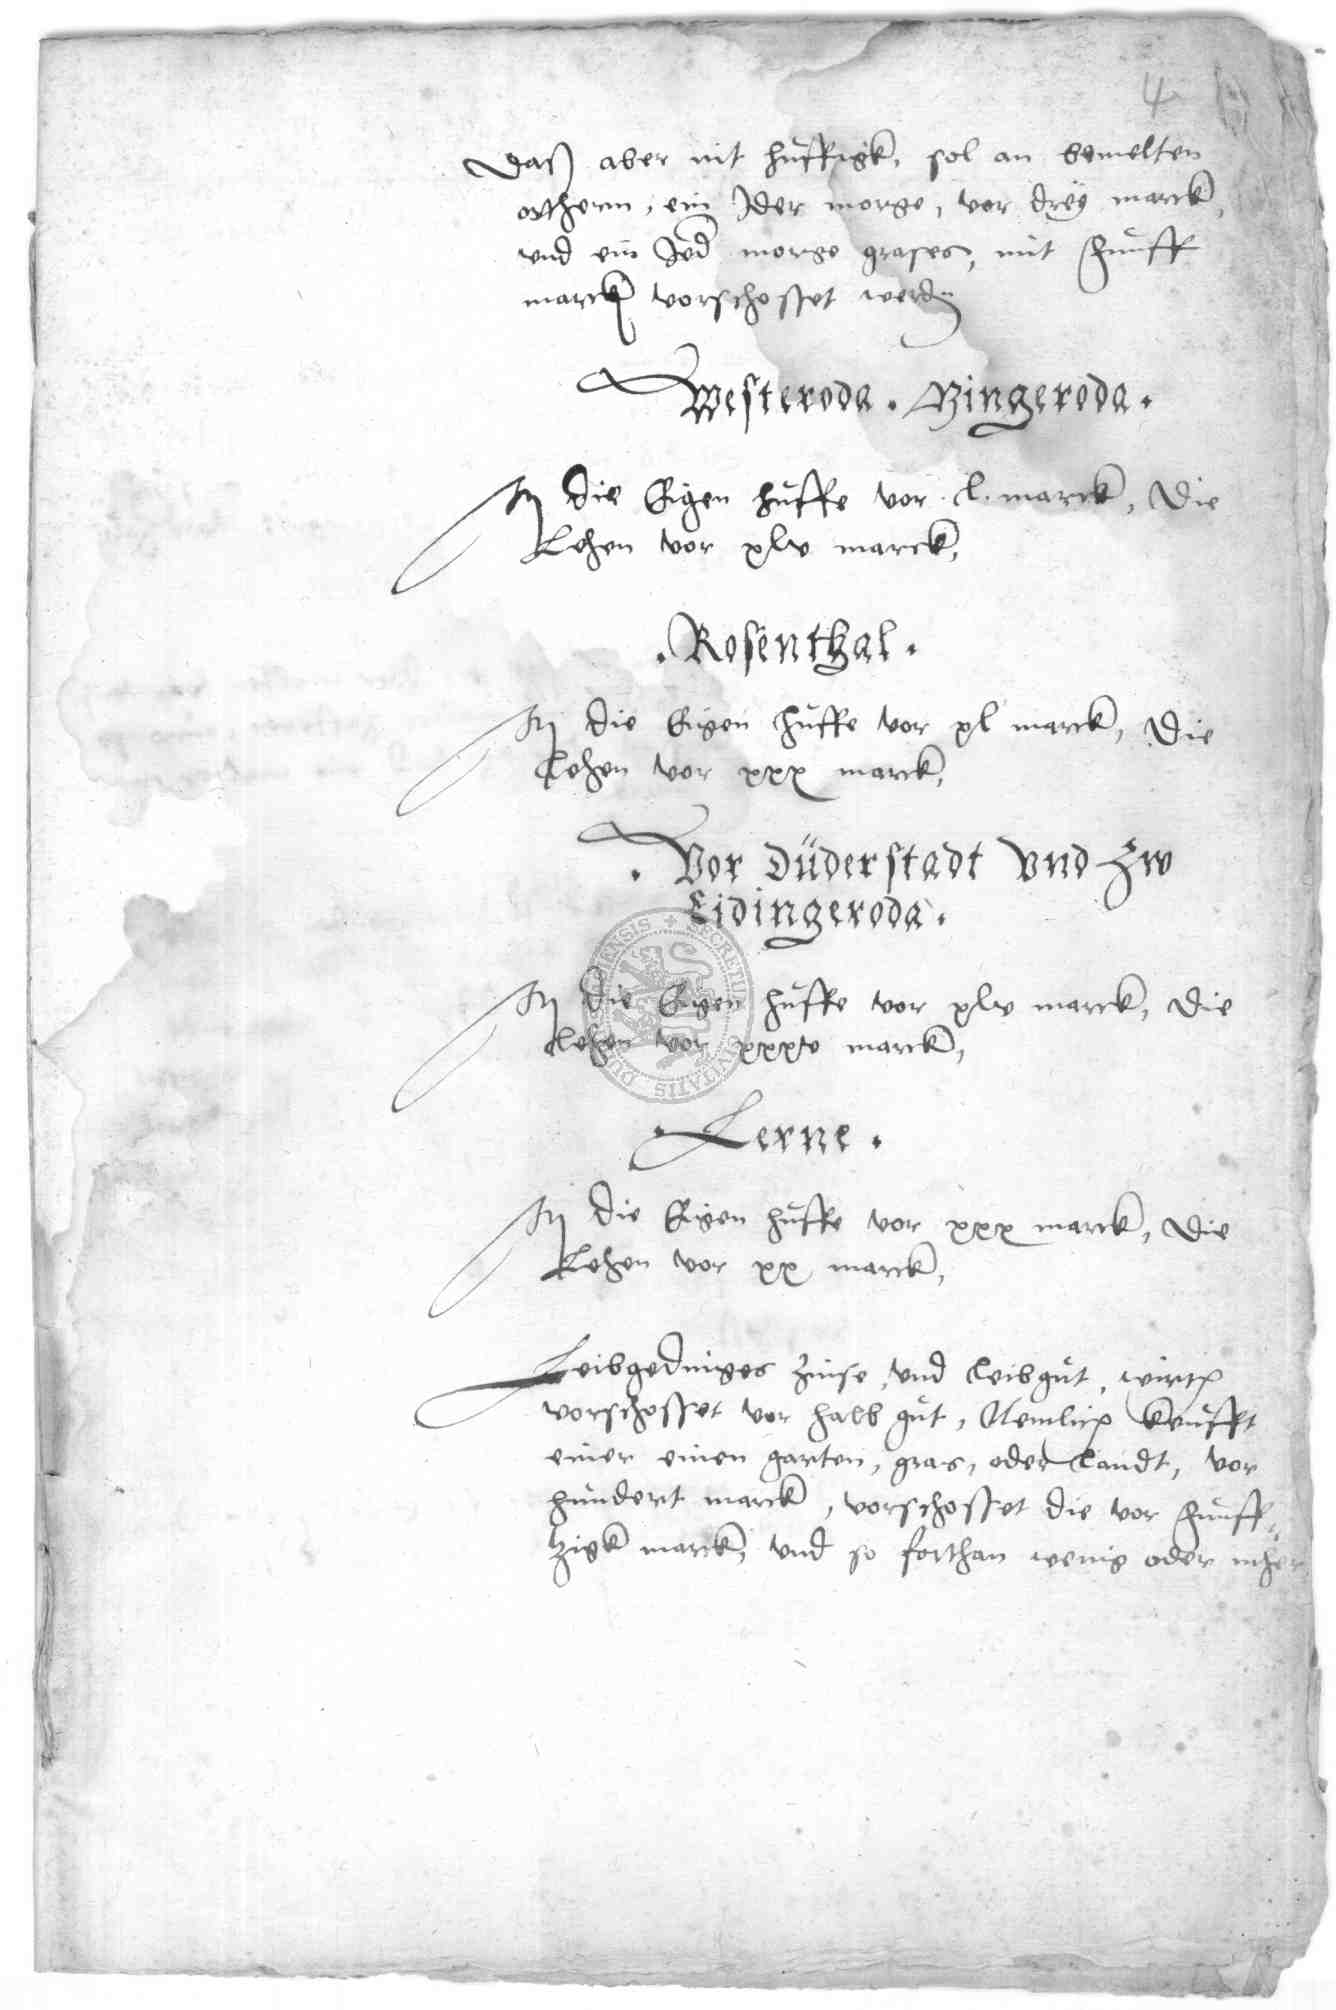 4
Daß aber nit huffigk, sol an bemelten
orthern, ein Jder morge, vor drey marck,
vnd ein Jed morge grases, mit funff
marck vorschosset werden
Westeroda . Bingeroda .
die Eigen huffe vor . l . marck, Die
Lehen vor xlv marck,
. Rosenthal .
die Eigen huffe vor xl marck, Die
Lehen vor xxx marck,
. Vor Düderstadt vnd Zw
Eidingeroda .
die Eigen huffe vor xlv marck, die
Lehen vor xxxv marck,
. Lerne .
die Eigen huffe vor xxx marck, die
Lehen vor xx marck,
Leibgedinges Zinse, vnd leibgut, wirt
vorschosset vor halb gut, Nemlich keufft
einer einen garten, gras, oder landt, vor
hundert marck, vorschosset die vor funff
zigk marck, vnd so forthan wenig oder mher
SECRETUM CIVITATIS DU